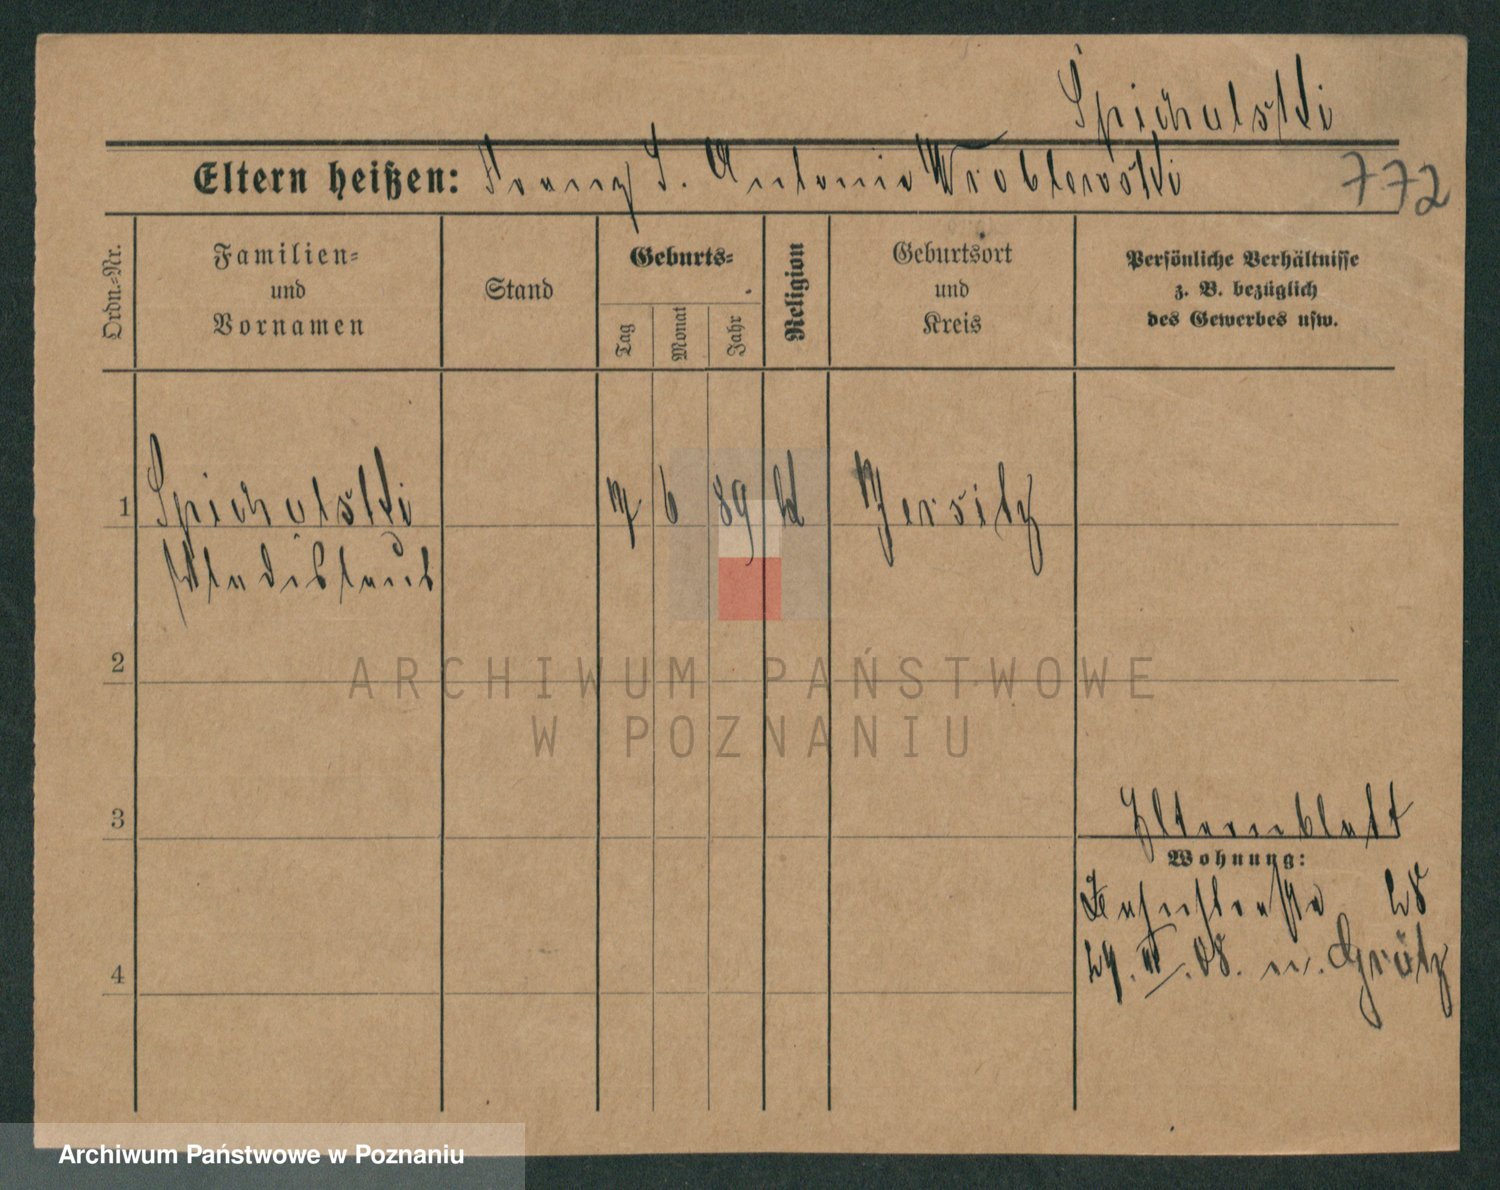 Spichalski
Eltern heißen: Franz S. Antonie Wroblewski 772
Ordn.=Nr.
Familien=
und
Vornamen
Stand
Geburts=
Tag
Monat
Jahr
Religion
Geburtsort
und
Kreis
Persönliche Verhältnisse
z. B. bezüglich
des Gewerbes usw.
1 Spichalski 6 89 k Jersitz
Wladislaus
2
ARCHIWUM PAŃSTWOWE
W POZNANIU
3 Elternblatt
Wohnung:
28
29. 08. n. Grätz
4
Archiwum Państwowe w Poznaniu